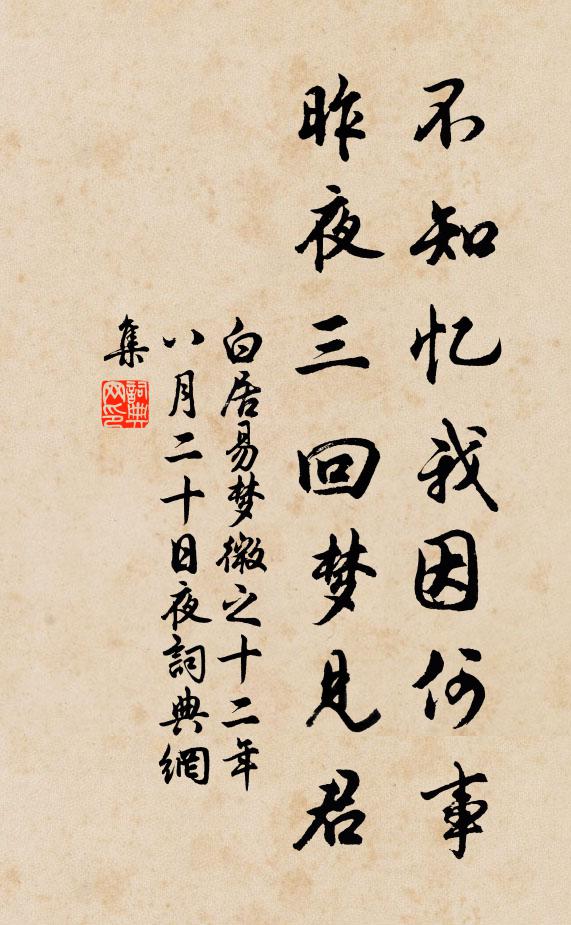 不知忆我因何事
昨夜三回梦见君
白居易梦微之十二年
八月二十日夜詞典網
集
詞典
网印